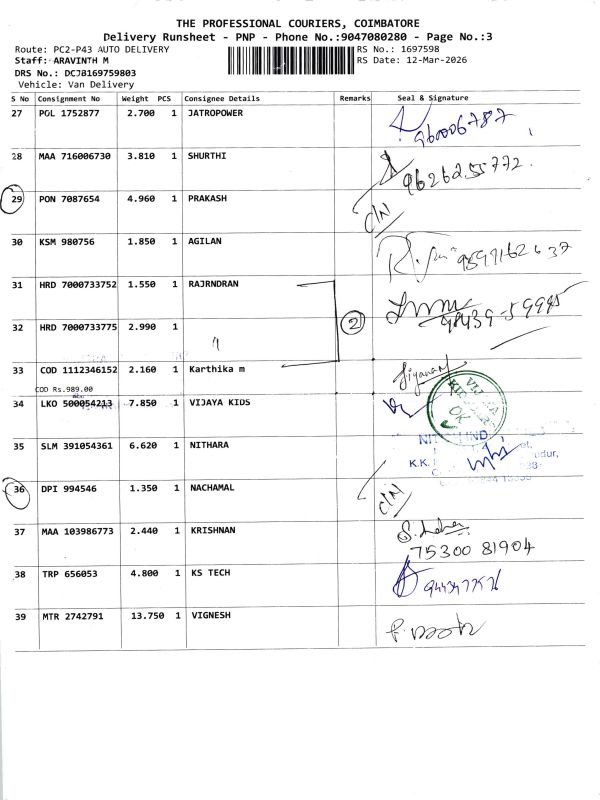 THE PROFESSIONAL COURIERS, COIMBATORE
Delivery Runsheet - PNP - Phone No.:9047080280 - Page No.:3
Route: PC2-P43 AUTO DELIVERY
RS No.: 1697598
Staff: ARAVINTH M
RS Date: 12-Mar-2026
DRS No.: DCJB169759803
Vehicle: Van Delivery
S No Consignment No Weight PCS Consignee Details Remarks Seal & Signature
27 PGL 1752877 2.700 1 JATROPOWER
960006787
28 MAA 716006730 3.810 1 SHURTHI
9626255772
29 PON 7087654 4.960 1 PRAKASH C/N
30 KSM 980756 1.850 1 AGILAN
31 HRD 7000733752 1.550 1 RAJRNDRAN
98439-59995
2
32 HRD 7000733775 2.990 1
33 COD 1112346152 2.160 1 Karthika m
COD Rs.989.00
34 LKO 500054213 7.850 1 VIJAYA KIDS
OK
35 SLM 391054361 6.620 1 NITHARA
K.K.
36 DPI 994546 1.350 1 NACHAMAL C/N
37 MAA 103986773 2.440 1 KRISHNAN
75300 81904
38 TRP 656053 4.800 1 KS TECH
39 MTR 2742791 13.750 1 VIGNESH